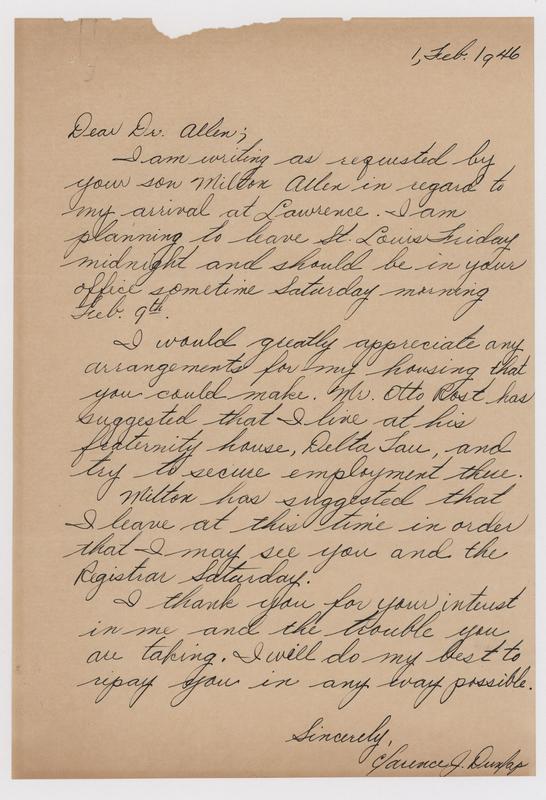 1, Feb. 1946
Dear Dr. Allen;
I am writing as requested by
your son Milton Allen in regard to
my arrival at Lawrence. I am
planning to leave St. Louis Friday
midnight and should be in your
office sometime Saturday morning
Feb. 9th.
I would greatly appreciate any
arrangements for my housing that
you could make. Mr. Otto Rost has
suggested that I live at his
fraternity house, Delta Tau, and
try to secure employment there.
Milton has suggested that
I leave at this time in order
that I may see you and the
Registrar Saturday.
I thank you for your interest
in me and the trouble you
are taking. I will do my best to
repay you in any way possible.
Sincerely,
Clarence J. Dunlap